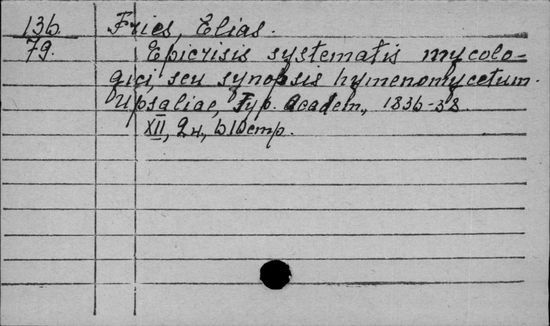 136. Fries, Elias.
79. Epicrisis systematis mycolo-
gici, seu synopsis hymenomycetum.
Upsaliae, Typ. Academ., 1836-38.
XII,